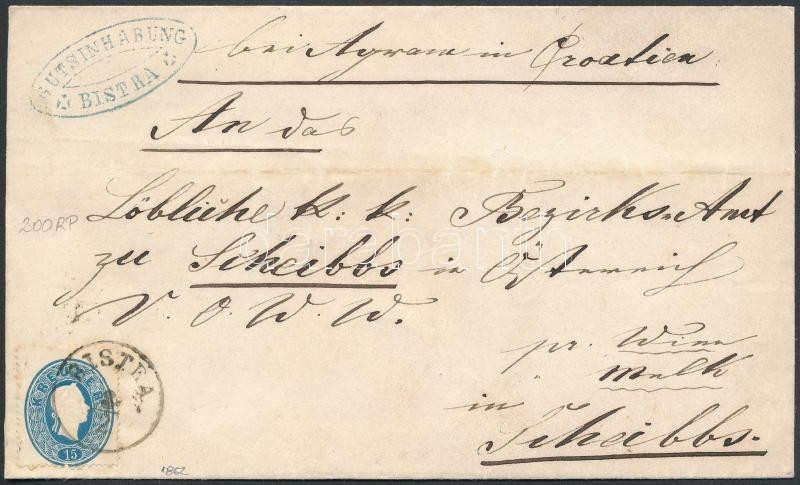 GUTSINHABUNG
BISTRA
bei Agram in Croatien
An das
Löbliche K: k: Bezirks-Amt
200 RP
darabanth
zu Scheibbs in Österreich
V. O. W. W.
pr. Wien
" Melk
in
Scheibbs.
BISTRA
KREUZER
15
1862